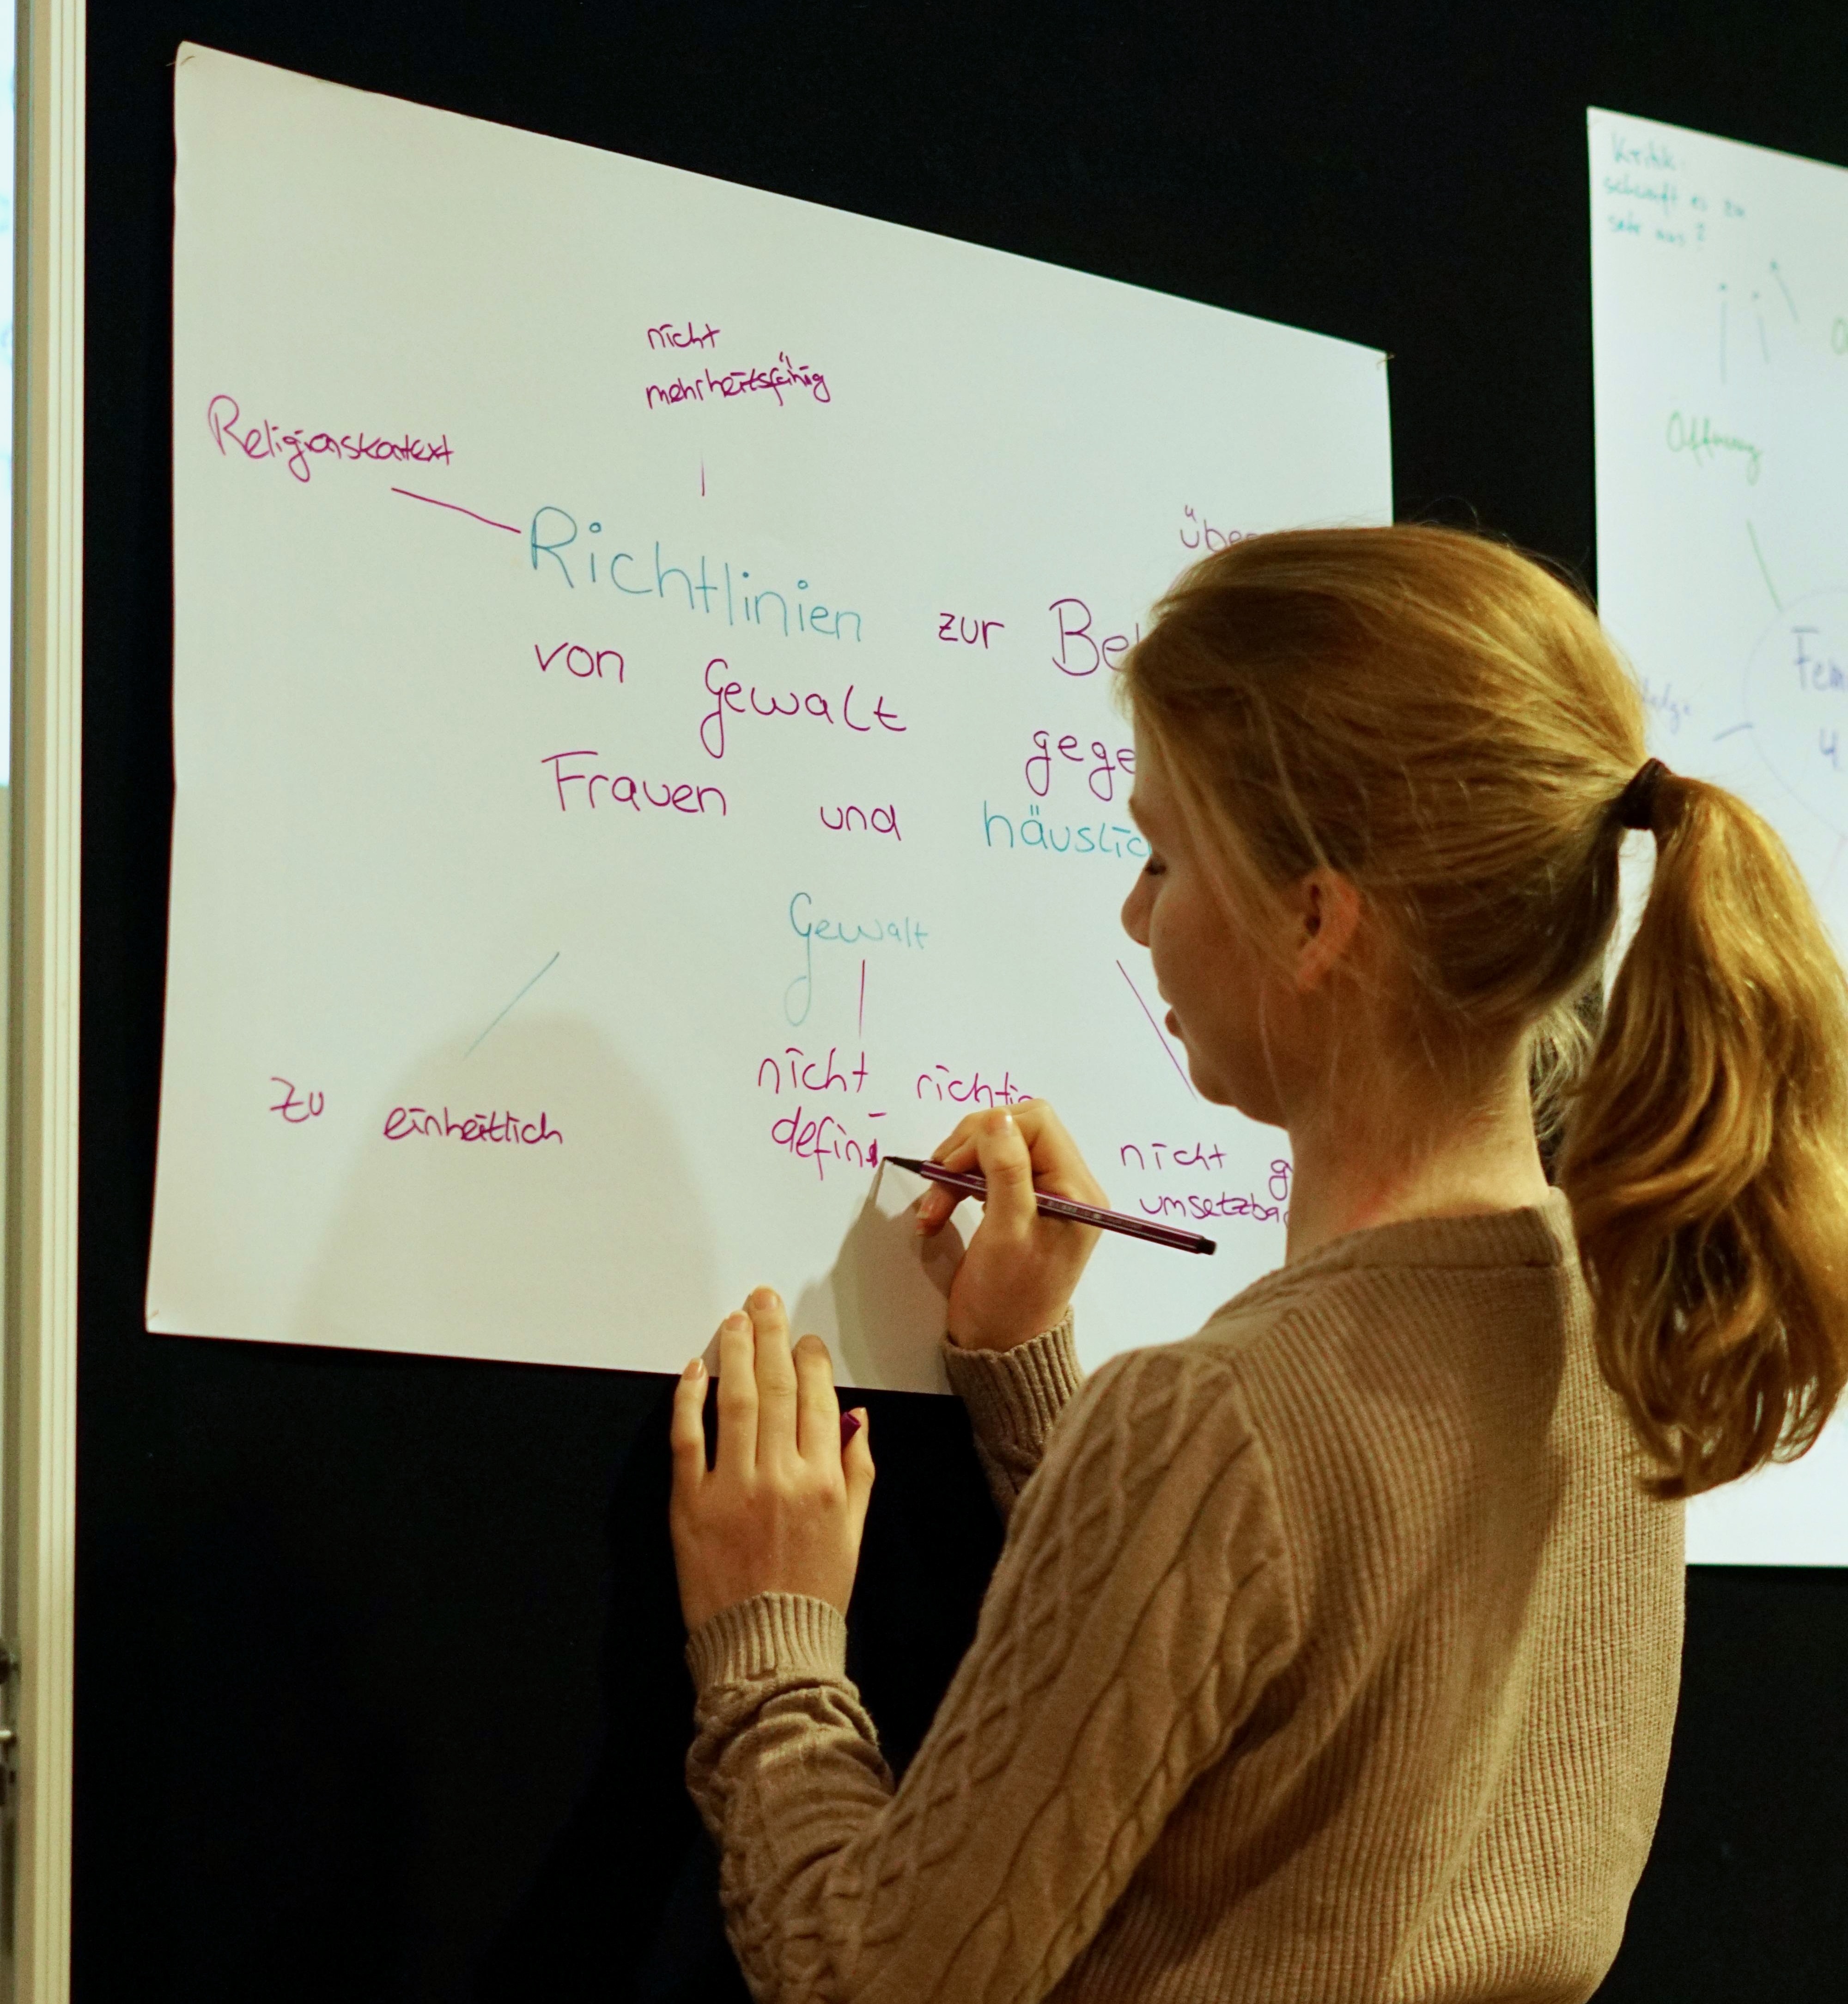 nicht
mehrheitsfähig
Religionskontext
über
Richtlinien zur Be
von Gewalt gege
Frauen und häuslic
Gewalt
zu einheitlich
nicht richtig
defini
nicht g
umsetzba
Kritik:
es zu
Öffnung
Fem
4